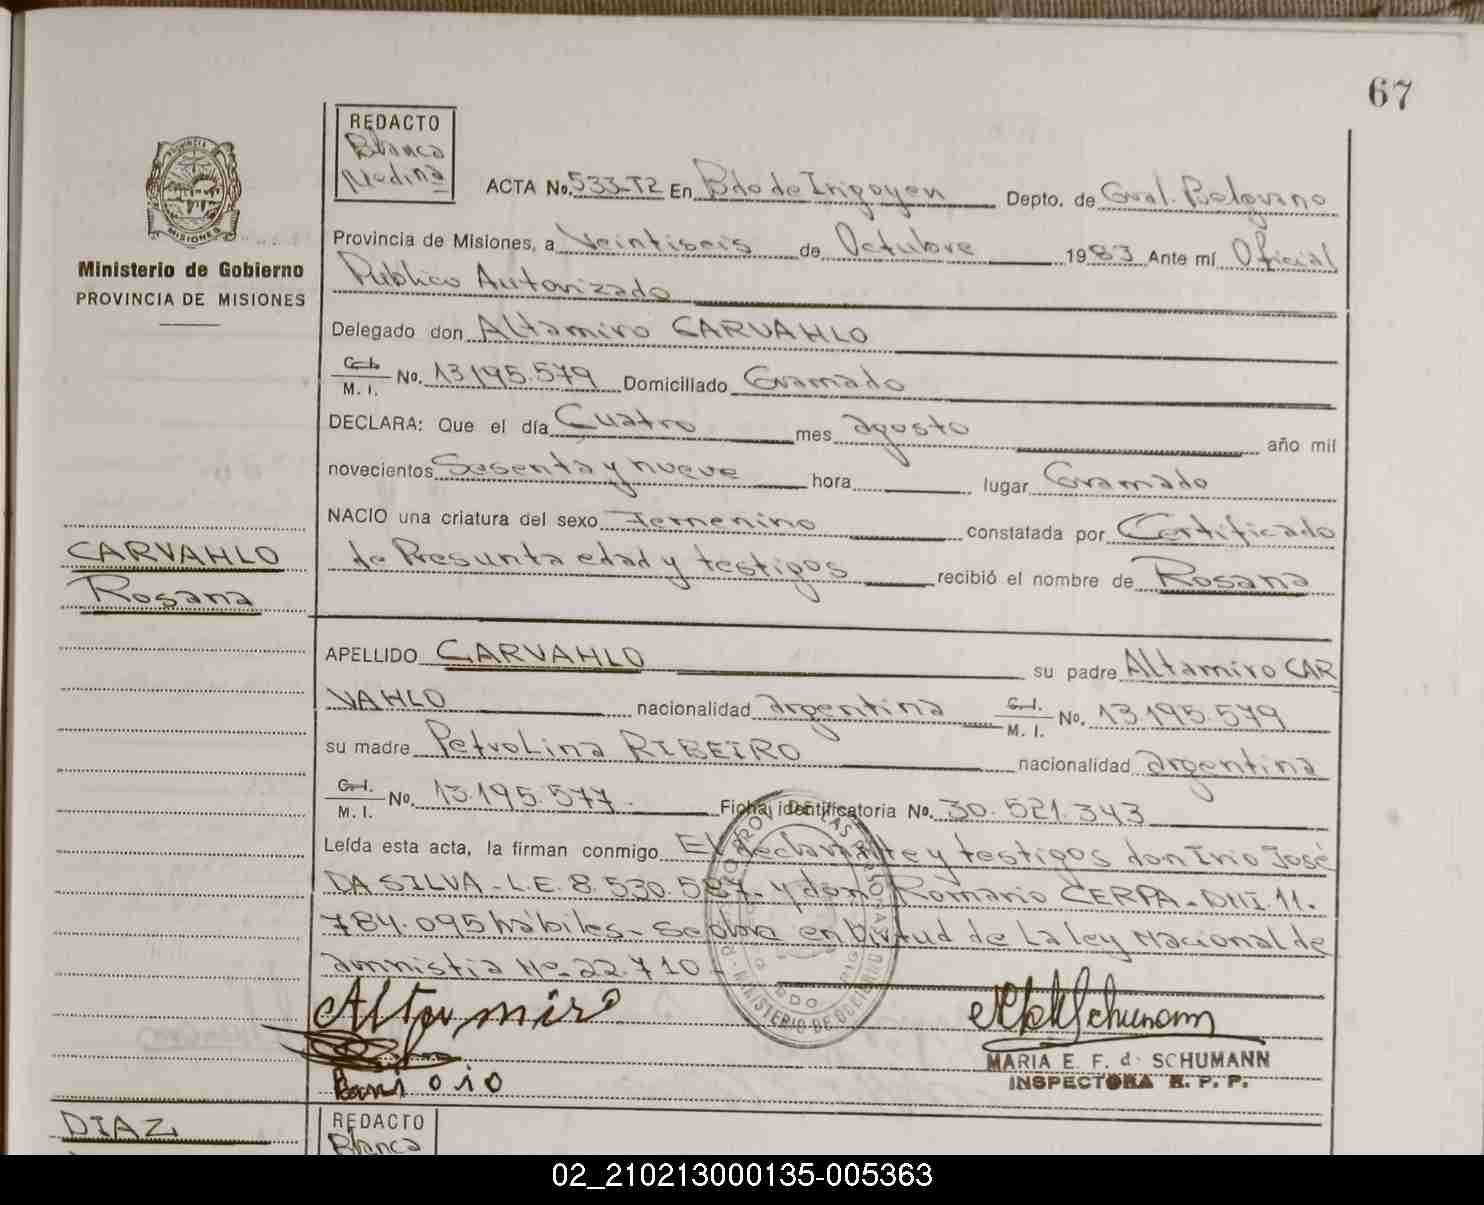 67
REDACTO
Blanca
Medina
ACTA No. 533-T2 En Bdo de Irigoyen Depto. de Gral. Belgrano
Provincia de Misiones, a Veintiseis de Octubre 1983 Ante mí Oficial
Publico Autorizado
Ministerio de Gobierno
PROVINCIA DE MISIONES
Delegado don Altamiro CARVAHLO
C. I.
M. I. No. 13.195.579 Domiciliado Gramado
DECLARA: Que el día Cuatro mes agosto año mil
novecientos Sesenta y nueve hora lugar Gramado
NACIO una criatura del sexo Femenino constatada por Certificado
de Presunta edad y testigos recibió el nombre de Rosana
CARVAHLO
Rosana
APELLIDO CARVAHLO su padre Altamiro CAR
VAHLO nacionalidad argentina C. I. M. I. No. 13.195.579
su madre Petrolina RIBEIRO nacionalidad argentina
C. I.
M. I. No. 13.195.577. Ficha identificatoria No. 30.521.343
Leída esta acta, la firman conmigo El declarante y testigos don Irio José
DA SILVA - L.E. 8.530.587 - y don Romario CERPA - DNI. 11.
784.095 hábiles - Se labra en Virtud de la ley Nacional de
amnistia No. 22.710 -
Altamiro
Schumann
MARIA E. F. d. SCHUMANN
INSPECTORA R. P. P.
MINISTERIO DE GOBIERNO
DIAZ
REDACTO
Blanca
02_210213000135-005363